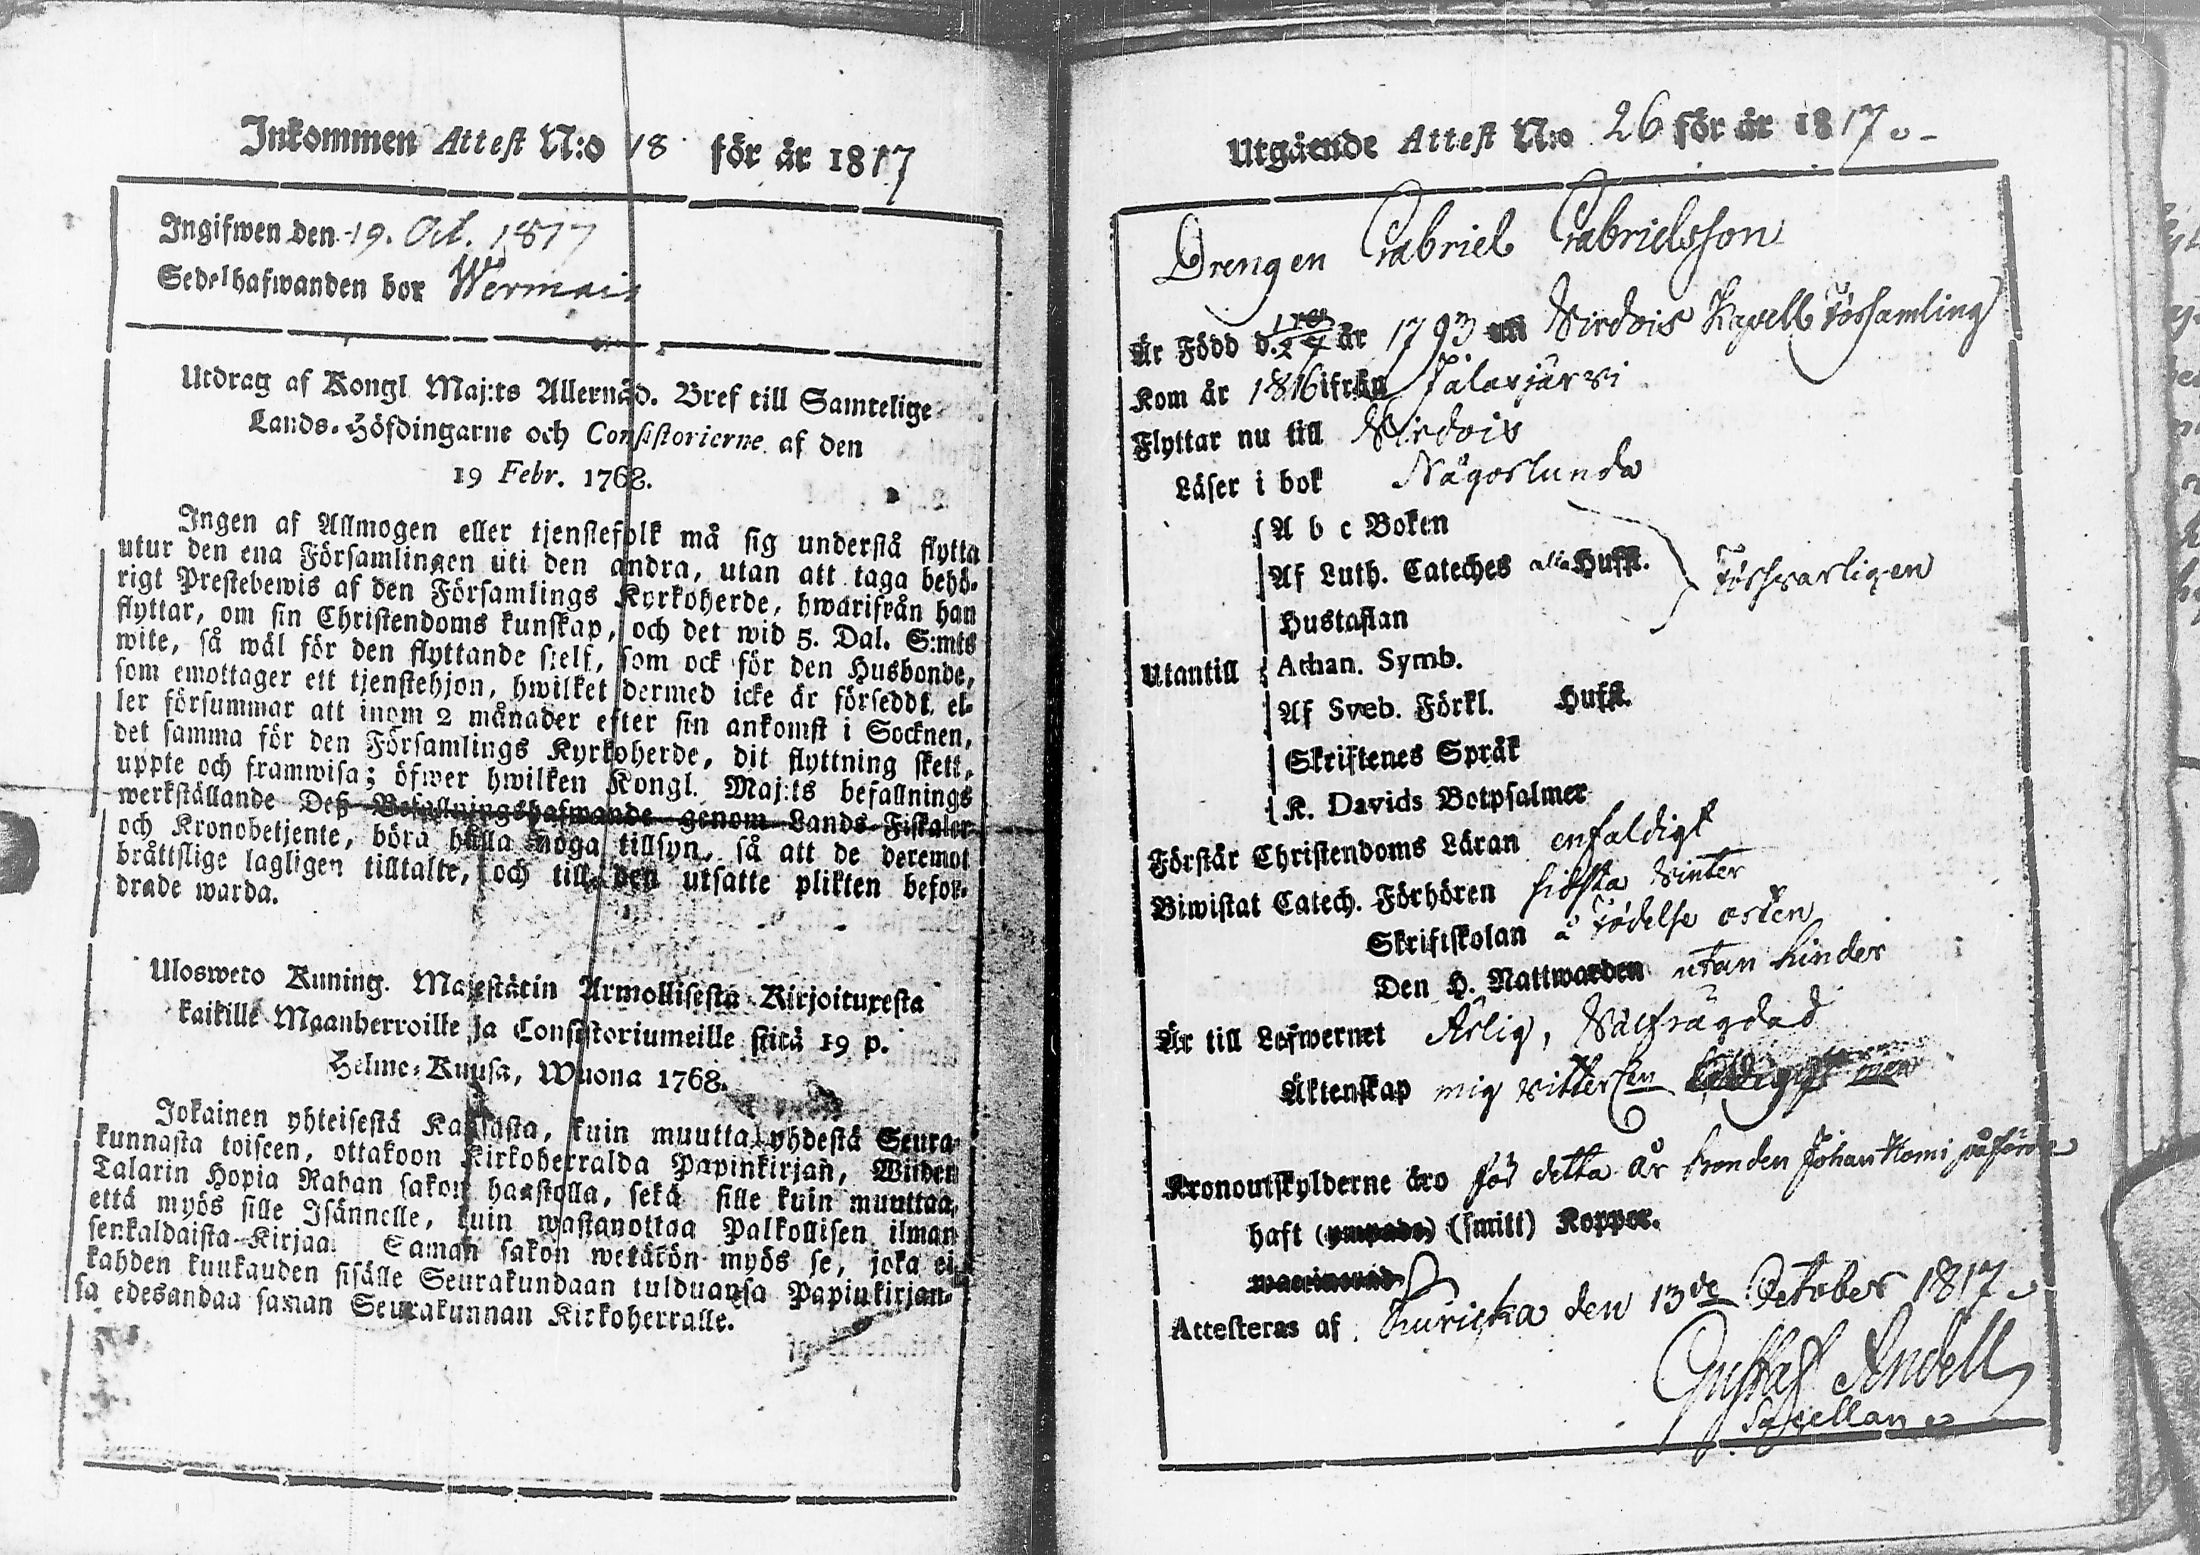 Inkommen Attest N:o 18 för år 1817
Ingifwen den 19. Oct. 1817
Sedelhafwanden bor Wermais
Utdrag af Kongl. Maj:ts Allernåd. Bref till Samtelige
Lands-Höfdingarne och Consistorierne af den
19 Febr. 1768.
Ingen af Allmogen eller tjenstefolk må sig understå flytta
utur den ena Församlingen uti den andra, utan att taga behö-
rigt Prestebewis af den Församlings Kyrkoherde, hwarifrån han
flyttar, om sin Christendoms kunskap, och det wid 5. Dal. S:mts
wite, så wäl för den flyttande sjelf, som ock för den Husbonde,
som emottager ett tjenstehjon, hwilket dermed icke är försedt, el-
ler försummar att inom 2 månader efter sin ankomst i Socknen,
det samma för den Församlings Kyrkoherde, dit flyttning skett,
uppte och framwisa; öfwer hwilken Kongl. Maj:ts befallnings
werkställande Deß Befallningshafwande genom Lands-Fiskaler
och Kronobetjente, böra hålla noga tillsyn, så att de deremot
bråttslige lagligen tilltalte, och till den utsatte plikten befor-
drade warda.
Ulosweto Kuning. Majestätin Armollisesta Kirjoituxesta
kaikille Maanherroille ja Consistoriumeille siitä 19 p.
Helme-Kuusa, Wuona 1768.
Jokainen yhteisestä Kansasta, kuin muutta yhdestä Seura-
kunnasta toiseen, ottakoon Kirkoherralda Papinkirjan, Wiiden
Talarin Hopia Rahan sakon haastolla, sekä sille kuin muuttaa,
että myös sille Isännelle, kuin wastanottaa Palkollisen ilman
senkaldaista Kirjaa. Saman sakon wetäkön myös se, joka ei
kahden kuukauden sisälle Seurakundaan tulduansa Papinkirjan-
sa edesandaa saman Seurakunnan Kirkoherralle.
Utgående Attest N:o 26 för år 1817
Drengen Gabriel Gabrielsson
Är Född d. år 1793 Wirdois Kapell Församling
Kom år 1816 ifrån Jalasjärvi
Flyttar nu till Wirdois
Läser i bok Någorlunda
A b c Boken
Af Luth. Cateches alla Hufst. Försvarligen
Hustaflan
Utantill Athan. Symb.
Af Sveb. Förkl. Hufst.
Skriftenes Språk
K. Davids Botpsalmer
Förstår Christendoms Läran enfaldigt
Biwistat Catech. Förhören sidsta Winter
Skriftskolan å Födelse orten
Den H. Nattwarden utan hinder
Är till Lefwernet Ärlig, Välfrägdad
Äktenskap mig vitterlen ledig
Kronoutskylderne äro för detta år bonden Johan påförde
haft (ympade) (smitt) Koppor.
Attesteras af. Kuricka den 13de October 1817
Gustaf Andell
Sacellan